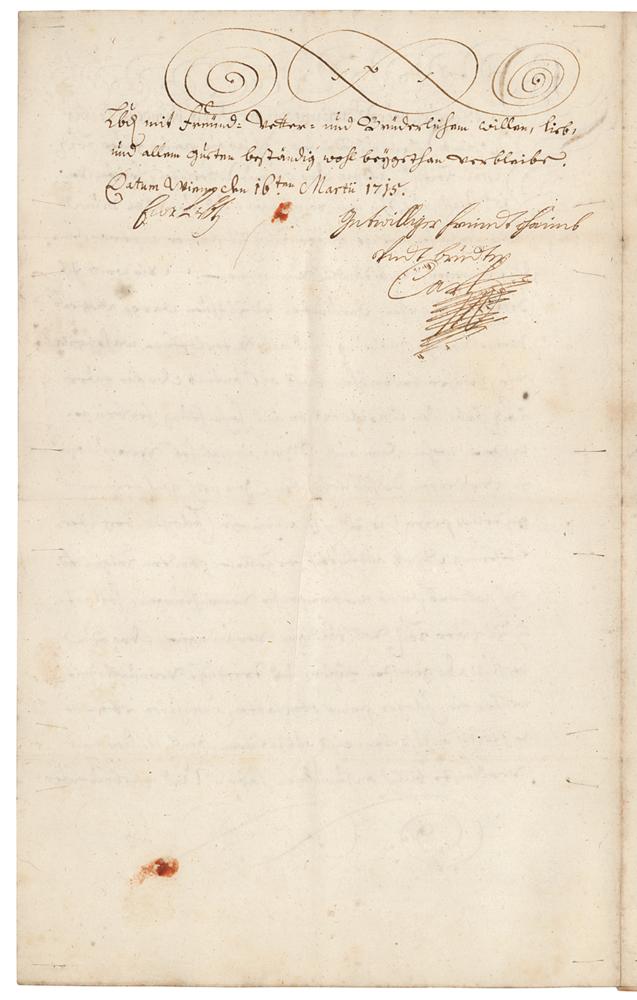 Lbd. mit Freünd- Vetter- und Brüderlichem willen, lieb,
und allem guten beständig wohl beygethan verbleibe.
Datum Wienn den 16ten Martii 1715.
Euer Lbd
Gutwilliger freindt
undt bruder
Carl